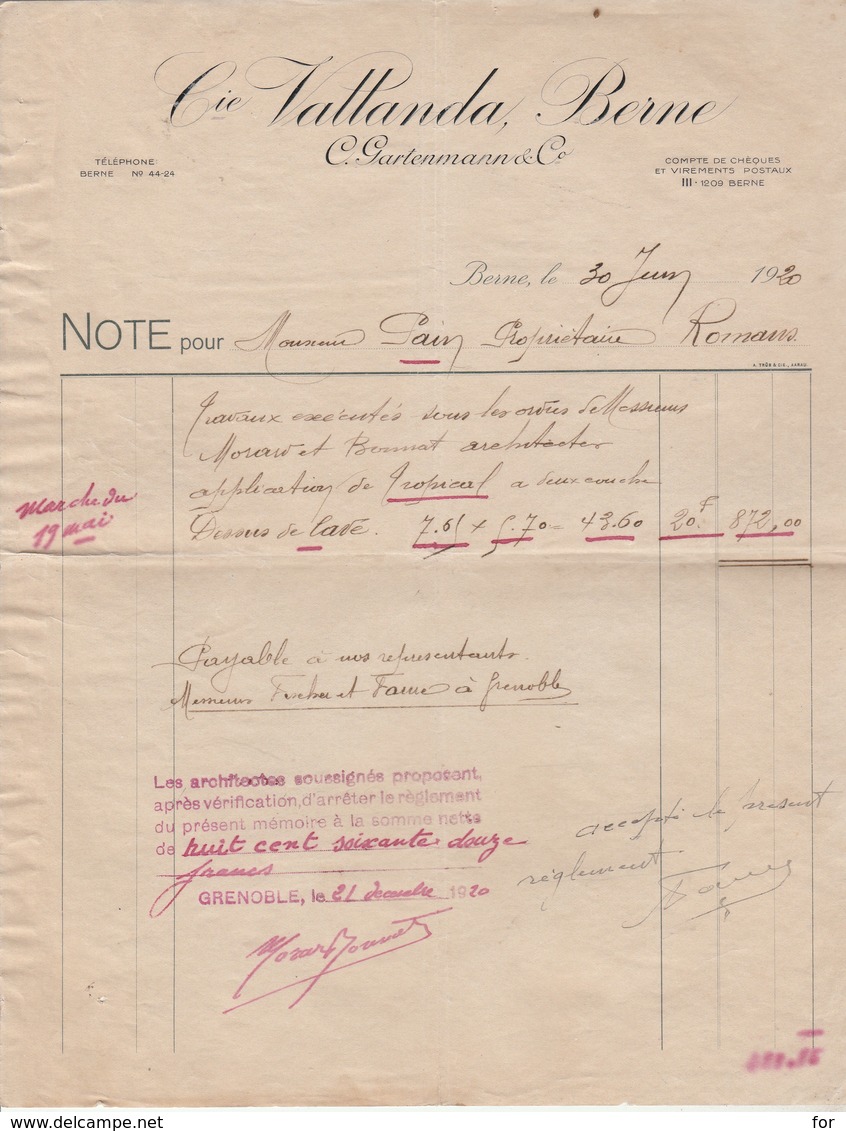 Cie Vattanda, Berne
C. Gartenmann & Co
TÉLÉPHONE
BERNE No 44-24
COMPTE DE CHÈQUES
ET VIREMENTS POSTAUX
III - 1209 BERNE
Berne, le 30 Juin 1920
NOTE pour Monsieur Pain Propriétaire Romans
A. TRÜB & CIE., AARAU.
Travaux exécutés sous les ordres de Messieurs
Morard et Bonnat architectes
application de Tropical a deux couche
Marche du
19 mai
Dessus de lave. 7.65 x 5.70 = 43.60 20.F 872,00
Payable à nos representants
Messieurs Fischer et Favre à Grenoble
Les architectes soussignés proposent,
après vérification, d'arrêter le règlement
du présent mémoire à la somme nette
de huit cent soixante douze
francs
GRENOBLE, le 21 decembre 1920
accepté le present
règlement
for
www.delcampe.net